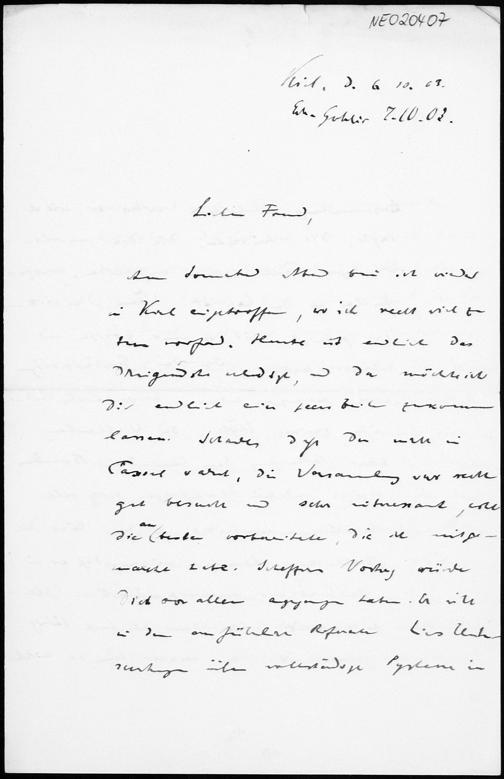 NE020407
Kiel, D. 6. 10. 03.
7.10.03.
Lieber Freund,
Am Sonnabend Abend bin ich wieder
in Kiel eingetroffen, wo ich recht viel zu
tun vorfand. Heute ist endlich das
Dringendste erledigt, und da möchte ich
Dir endlich einen zukommen
lassen. Schade, dass Du nicht in
Cassel warst, die Versammlung war recht
gut besucht und sehr interessant, wohl
die am besten vorbereitete, die ich mitge-
macht habe. Scheffers Vortrag würde
Dich vor allem haben. Er will
in dem ausführlichen Referate Lies Unter-
suchungen über vollständige Systeme in